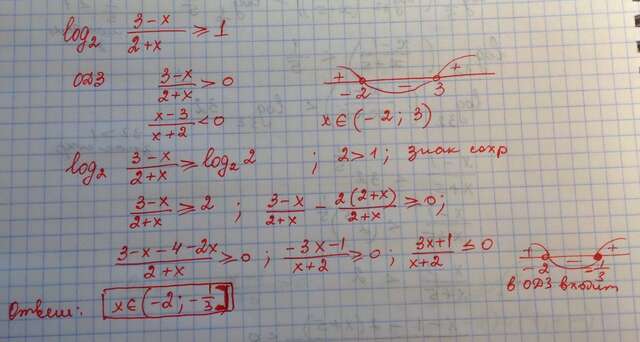 log₂ (3-x)/(2+x) ≥ 1
ОДЗ (3-x)/(2+x) > 0
+ -2 - 3 +
(x-3)/(x+2) < 0
x∈(-2; 3)
log₂ (3-x)/(2+x) ≥ log₂ 2 ; 2>1; знак сохр
(3-x)/(2+x) ≥ 2 ; (3-x)/(2+x) - 2(2+x)/(2+x) ≥ 0;
(3-x-4-2x)/(2+x) ≥ 0 ; (-3x-1)/(x+2) ≥ 0 ; (3x+1)/(x+2) ≤ 0
+ -2 - -1/3 +
в ОДЗ входит
Ответ: x∈(-2; -1/3]